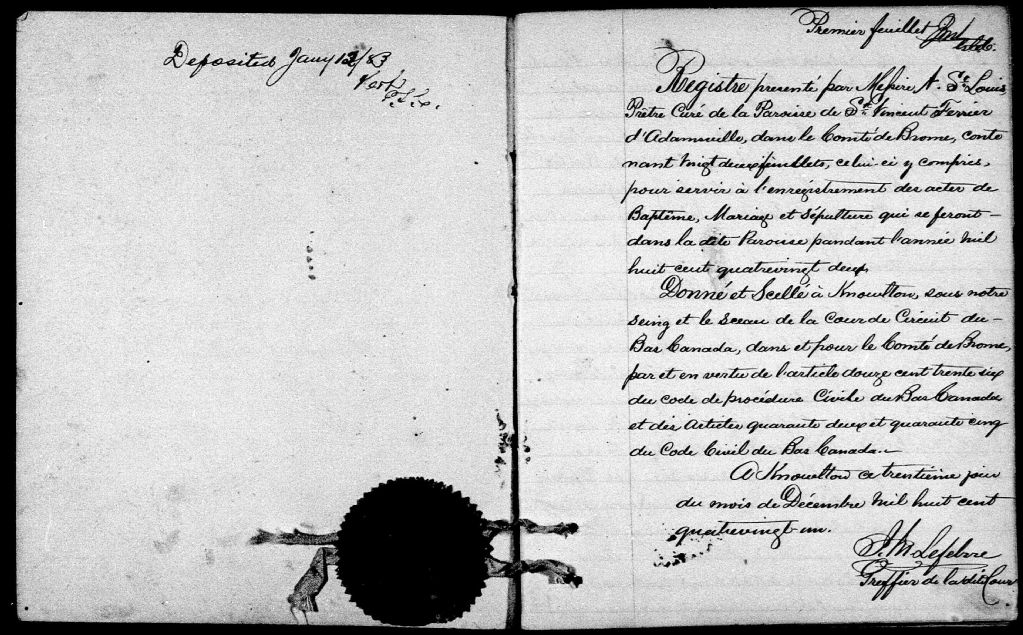 Deposited Jany 12/83
Premier feuillet
Registre présenté par Messire A. St. Louis
Prêtre Curé de la Paroisse de St. Vincent Ferrier
d'Adamsville, dans le Comté de Brome, conte
nant vingt deux feuillets, celui-ci y compris,
pour servir à l'enrégistrement des actes de
Baptême, Mariage et Sépulture qui se feront -
dans la dite Paroisse pandant l'année Mil
huit cent quatrevingt deux,
Donné et Scellé à Knowlton, sous notre
seing et le sceau de la Cour de Circuit du -
Bas Canada, dans et pour le Comté de Brome,
par et en vertu de l'article douze cent trente six
du code de procédure Civile du Bas Canada
et des Articles quarante deux et quarante cinq
du Code Civil du Bas Canada. -
A Knowlton ce trentième jour
du mois de Décembre Mil huit cent
quatrevingt-un.
Lefebvre
Greffier de la dite Cour